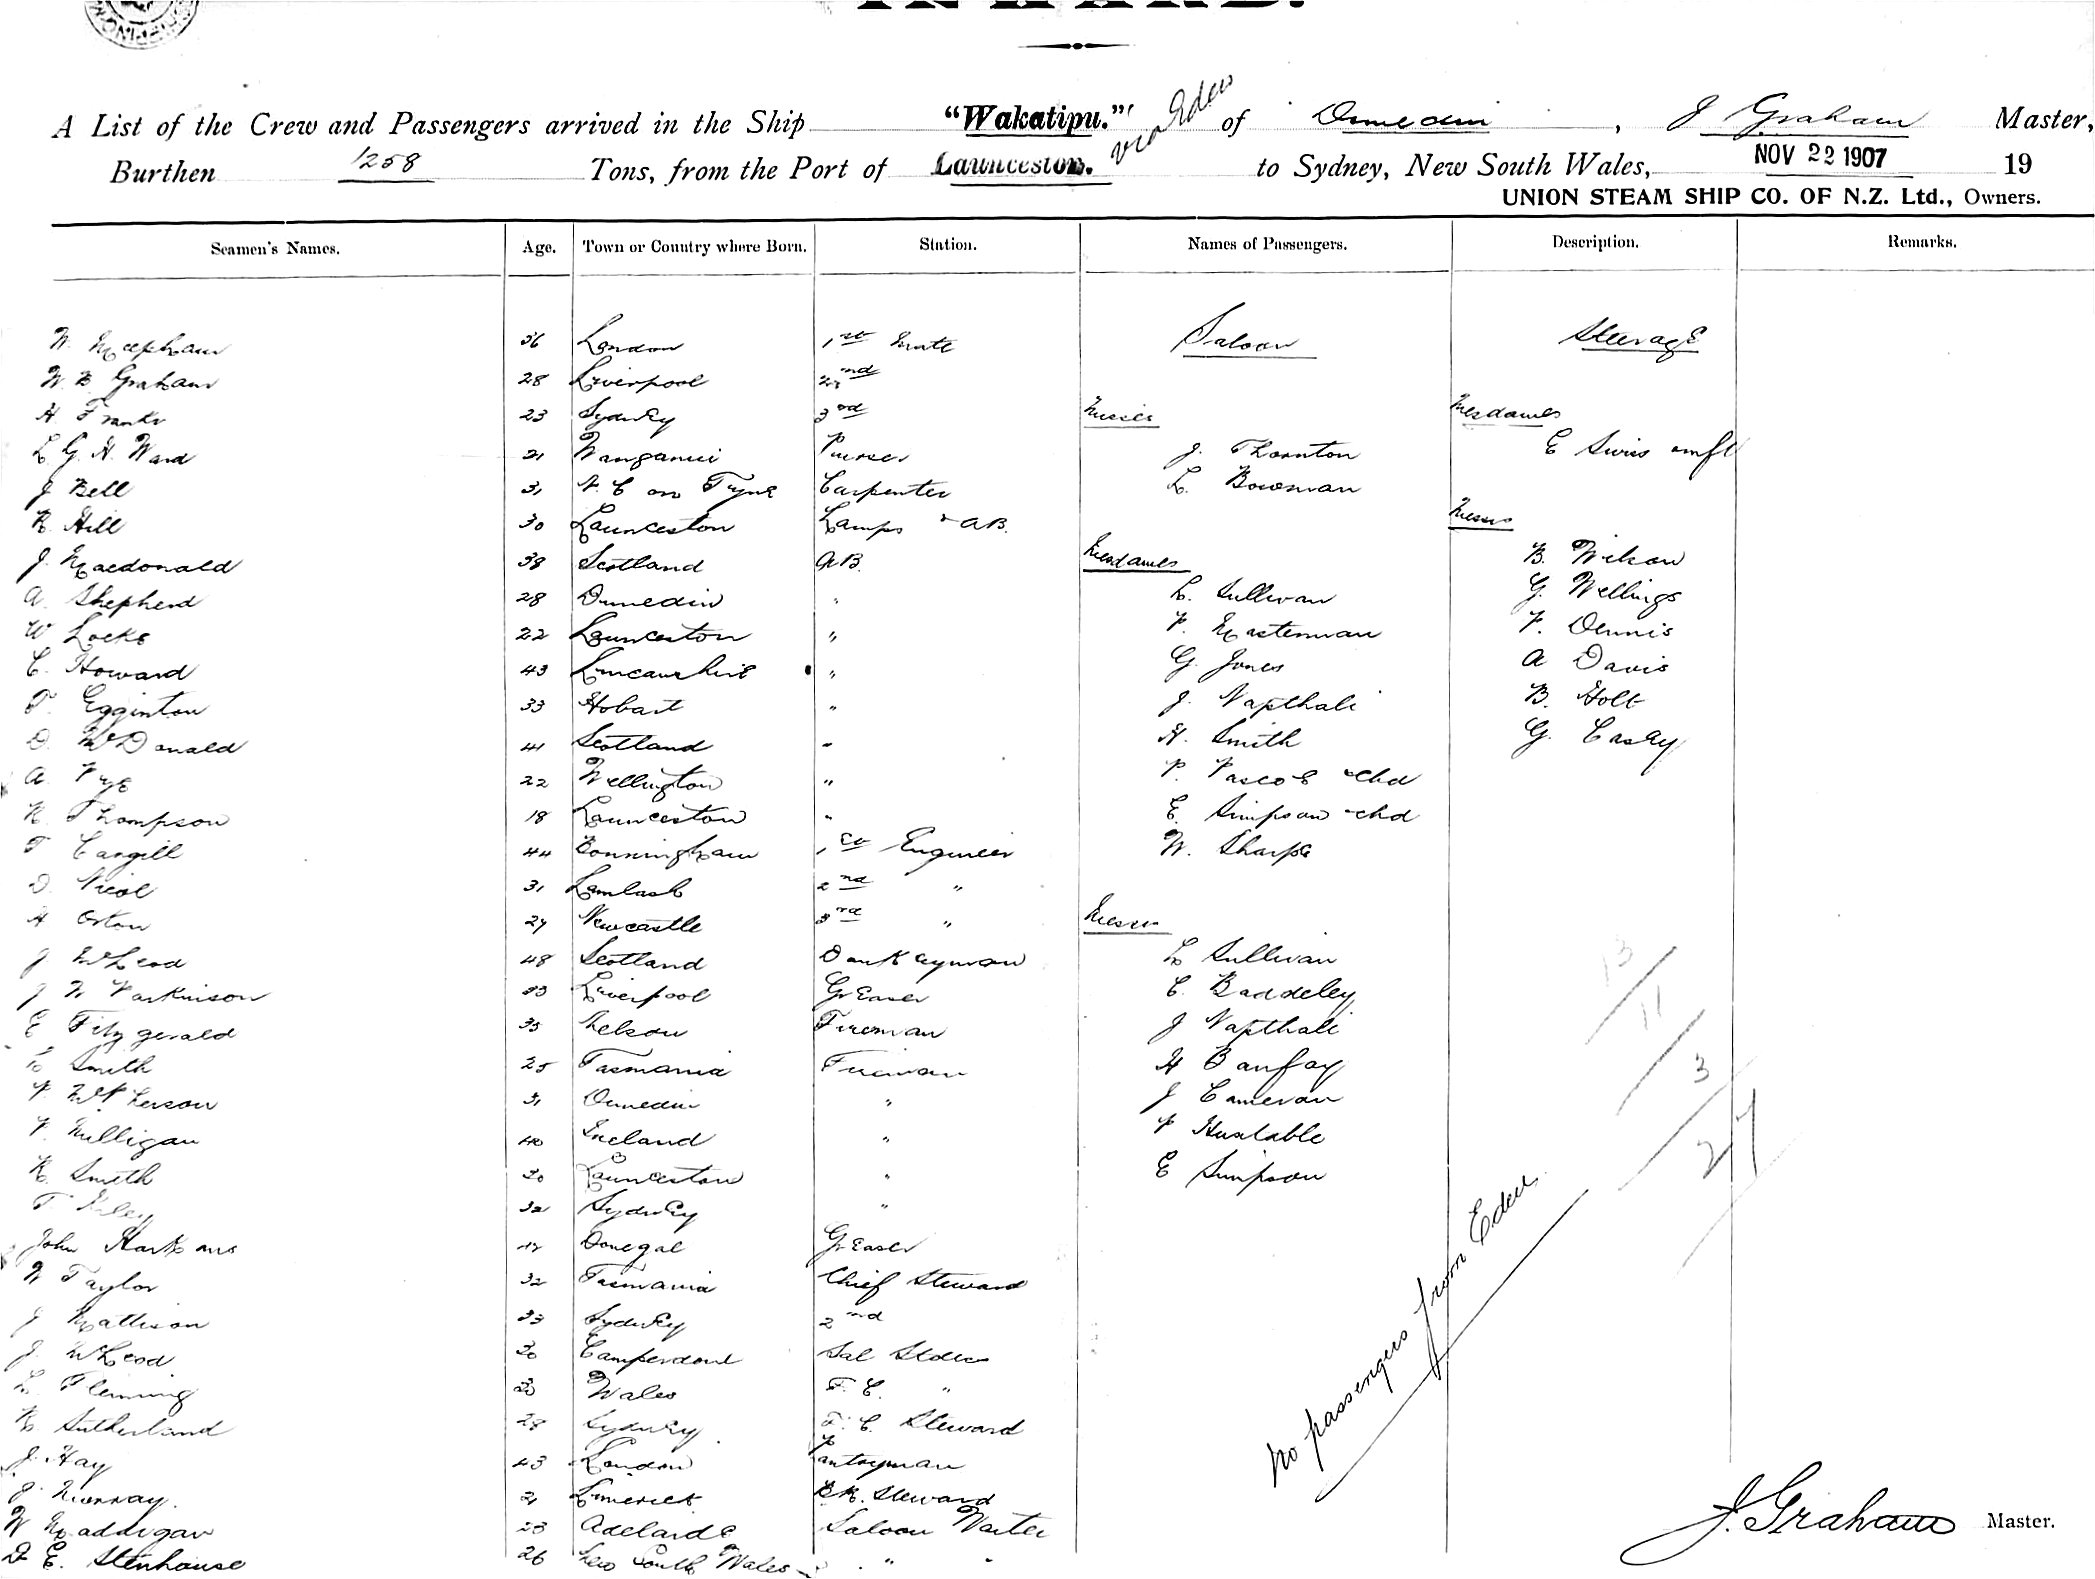 INWARD.
A List of the Crew and Passengers arrived in the Ship "Wakatipu." via Eden of Dunedin, J Graham Master,
Burthen 1258 Tons, from the Port of Launceston. to Sydney, New South Wales, NOV 22 1907 19
UNION STEAM SHIP CO. OF N.Z. Ltd., Owners.
Seamen's Names. Age. Town or Country where Born. Station. Names of Passengers. Description. Remarks.
W. Mepham 36 London 1st Mate Saloon Steerage
W. B Graham 28 Liverpool 2nd
H Franks 23 Sydney 3rd Messrs Mesdames
L G. H. Ward 21 Wanganui Purser J. Thornton E Swiss
J Bell 31 N. C on Tyne Carpenter L. Bowman
R Hill 30 Launceston Lamps & AB. Messrs
J. Macdonald 38 Scotland AB. Mesdames B. Wilson
A. Shepherd 28 Dunedin " L. Sullivan G. Wellings
W Locke 22 Launceston " F. Masterman F. Dennis
C. Howard 43 Lincolnshire " G. Jones A Davis
T. Egginton 33 Hobart " J. Napthali B. Holt
D. McDonald 41 Scotland " H. Smith G. Casey
A. Pye 22 Wellington " P. Pascoe & chd
R. Thompson 18 Launceston " E. Simpson & chd
T Cargill 44 1st Engineer W. Sharpe
D. Nicol 31 Lamlash 2nd "
H Orton 27 Newcastle 3rd " Messrs
J McLeod 48 Scotland Donkeyman L Sullivan
J W Parkinson 33 Liverpool Greaser C. Baddeley
E Fitzgerald 35 Nelson Fireman J Napthali
Smith 25 Tasmania Fireman H
P McPherson 31 Dunedin " J Cameron
P. Mulligan 40 Ireland " P Huxtable
R. Smith 30 Launceston " E Simpson
T 32 Sydney "
John Harkans Donegal Greaser
W Taylor 32 Tasmania Chief Steward
J Mattison 33 Sydney 2nd
J. McLeod 30 Camperdown Sal
L. Fleming Wales F. C. "
R Sutherland 28 Sydney F. C. Steward
J. Hay 43 London Pantryman
J Murray. 21 Limerick BR. Steward
W Maddigan 23 Adelaide Saloon Waiter
D E. Stenhouse 26 New South Wales " "
13
11
3
27
No passengers from Eden.
J. Graham Master.